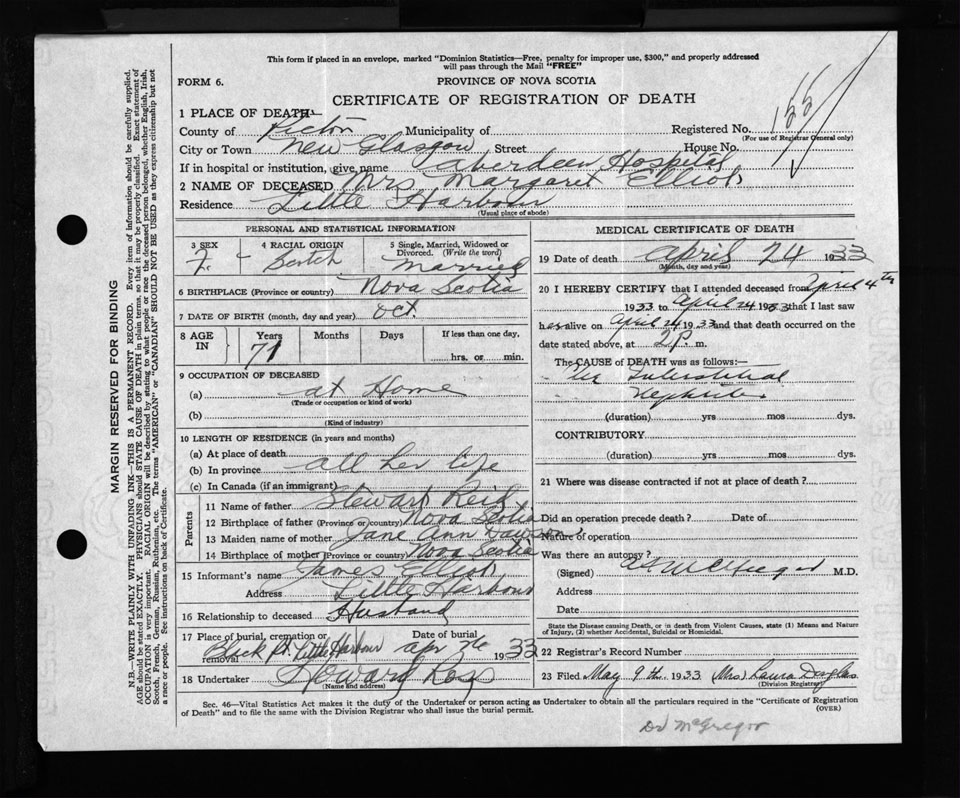 This form if placed in an envelope, marked "Dominion Statistics—Free, penalty for improper use, $300," and properly addressed
will pass through the Mail "FREE"
FORM 6.
PROVINCE OF NOVA SCOTIA
CERTIFICATE OF REGISTRATION OF DEATH
155
1 PLACE OF DEATH—
County of Pictou Municipality of Registered No.
(For use of Registrar General only)
City or Town New Glasgow Street House No.
If in hospital or institution, give name Aberdeen Hospital
2 NAME OF DECEASED Mrs Margaret Elliot
Residence Little Harbour
(Usual place of abode)
PERSONAL AND STATISTICAL INFORMATION
3 SEX 4 RACIAL ORIGIN 5 Single, Married, Widowed or
Divorced. (Write the word)
F. Married
6 BIRTHPLACE (Province or country) Nova Scotia
7 DATE OF BIRTH (month, day and year) Oct.
8 AGE IN Years Months Days If less than one day,
71 hrs. or min.
9 OCCUPATION OF DECEASED
(a) at Home
(Trade or occupation or kind of work)
(b)
(Kind of industry)
10 LENGTH OF RESIDENCE (in years and months)
(a) At place of death
(b) In province all her life
(c) In Canada (if an immigrant)
Parents
11 Name of father Stewart Reid
12 Birthplace of father (Province or country) Nova Scotia
13 Maiden name of mother Jane Ann Dawson
14 Birthplace of mother (Province or country) Nova Scotia
15 Informant's name James Elliot
Address Little Harbour
16 Relationship to deceased Husband
17 Place of burial, cremation or Date of burial
removal Black Pt. Little Harbour apr 26 1933
18 Undertaker Howard Ross
(Name and address)
MEDICAL CERTIFICATE OF DEATH
19 Date of death April 24 1933
(Month, day and year)
20 I HEREBY CERTIFY that I attended deceased from April 4th
1933 to April 24 1933 that I last saw
her alive on April 24 1933 and that death occurred on the
date stated above, at 2 P. m.
The CAUSE of DEATH was as follows:—
Interstitial
Nephritis
(duration) yrs mos dys.
CONTRIBUTORY
(duration) yrs mos dys.
21 Where was disease contracted if not at place of death?
Did an operation precede death? Date of
Nature of operation
Was there an autopsy?
(Signed) McGregor M.D.
Address
Date
State the Disease causing Death, or in death from Violent Causes, state (1) Means and Nature
of Injury, (2) whether Accidental, Suicidal or Homicidal.
22 Registrar's Record Number
23 Filed May 9th. 1933 (Mrs) Laura Douglas
(Division Registrar)
Sec. 46—Vital Statistics Act makes it the duty of the Undertaker or person acting as Undertaker to obtain all the particulars required in the "Certificate of Registration
of Death" and to file the same with the Division Registrar who shall issue the burial permit.
(OVER)
Dr McGregor
MARGIN RESERVED FOR BINDING
N.B.—WRITE PLAINLY WITH UNFADING INK—THIS IS A PERMANENT RECORD. Every item of information should be carefully supplied.
AGE should be stated EXACTLY. PHYSICIANS should STATE CAUSE OF DEATH in plain terms, so that it may be properly classified. Exact statement of
OCCUPATION is very important. RACIAL ORIGIN will be described by stating to what people or race the deceased person belonged, whether English, Irish,
Scotch, French, German, Russian, Ruthenian, etc. The terms "AMERICAN" or "CANADIAN" SHOULD NOT BE USED as they express citizenship but not
a race or people. See instructions on back of Certificate.